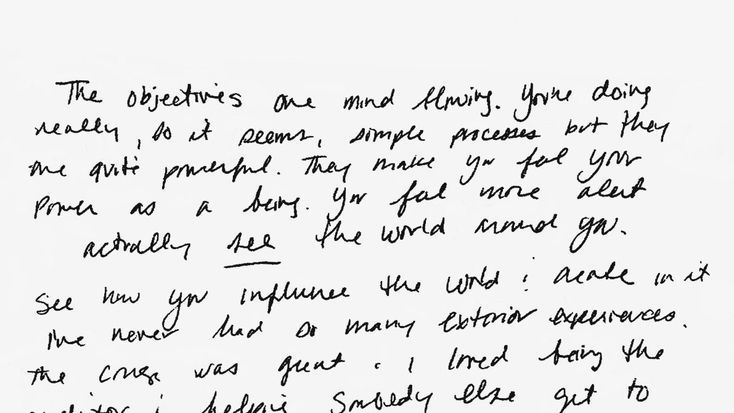 The objectives are mind blowing. You're doing
really, so it seems, simple processes but they
are quite powerful. They make you feel your
power as a being. You feel more alert
actually see the world around you.
See how you influence the world & create in it
I've never had so many exterior experiences.
The course was great. I loved being the
auditor & helping somebody else get to